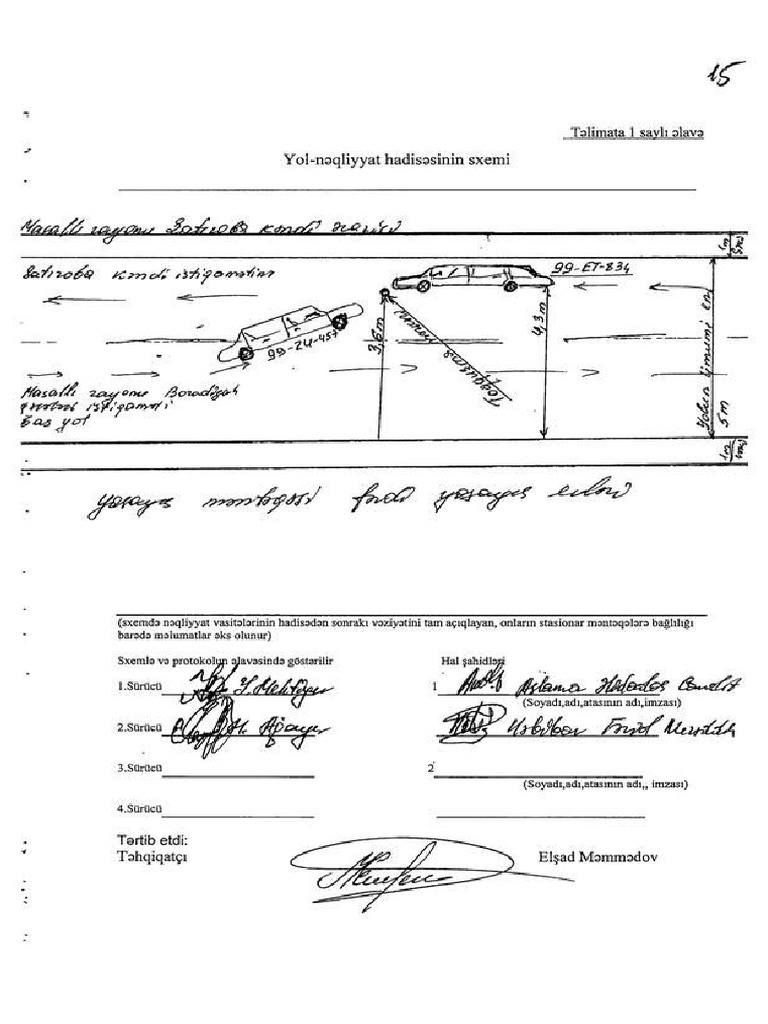 15
Təlimata 1 saylı əlavə
Yol-nəqliyyat hadisəsinin sxemi
Masallı rayonu kəndi ərazisi
kəndi istiqaməti
99-ET-834
99-ZU-457
3,6 m
Toqquşma
4,3 m
Yolun ümumi eni
5 m
1m
1m
Masallı rayonu Boradigah
istiqaməti
baş yol
yaşayış məntəqəsi fərdi yaşayış evləri
(sxemdə nəqliyyat vasitələrinin hadisədən sonrakı vəziyətini tam açıqlayan, onların stasionar məntəqələrə bağlılığı
barədə məlumatlar əks olunur)
Sxemlə və protokolun əlavəsində göstərilir
Hal şahidləri
1.Sürücü
1
(Soyadı,adı,atasının adı,imzası)
2.Sürücü
3.Sürücü
2
(Soyadı,adı,atasının adı,, imzası)
4.Sürücü
Tərtib etdi:
Təhqiqatçı Elşad Məmmədov